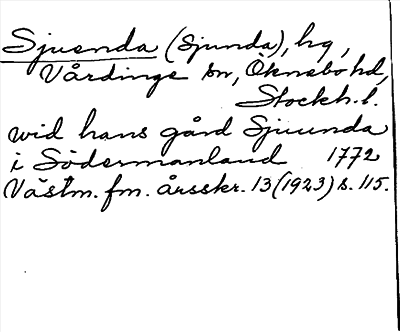 Sjuenda (Sjunda), hg,
Vårdinge sn, Öknebo hd,
Stockh. l.
wid hans gård Sjuunda
i Södermanland 1772
Västm. fm. årsskr. 13 (1923) s. 115.